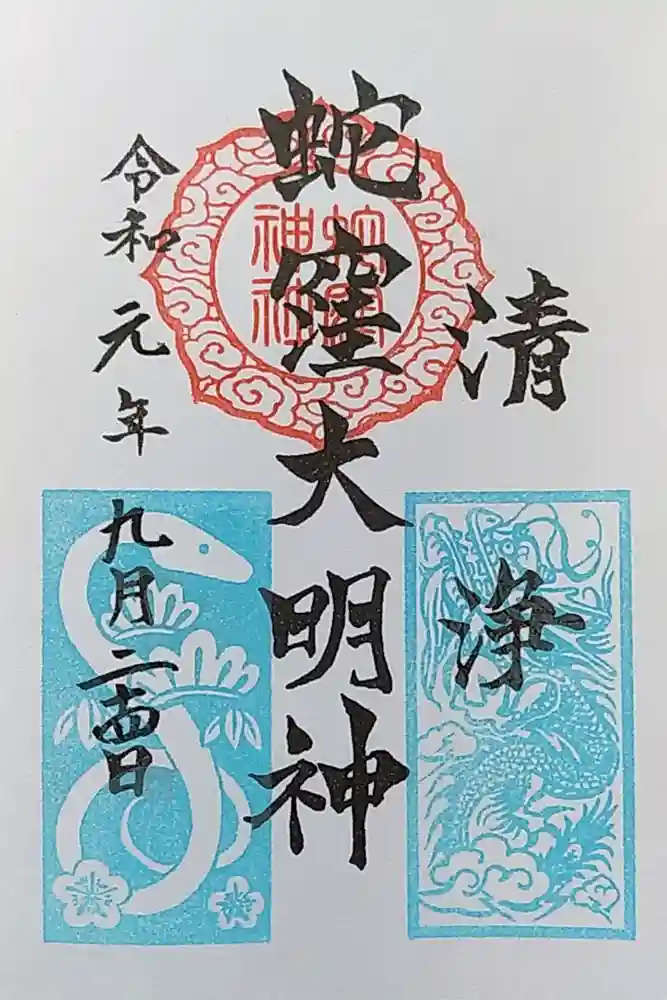 清浄
蛇窪大明神
蛇窪
神社
令和元年九月二十四日